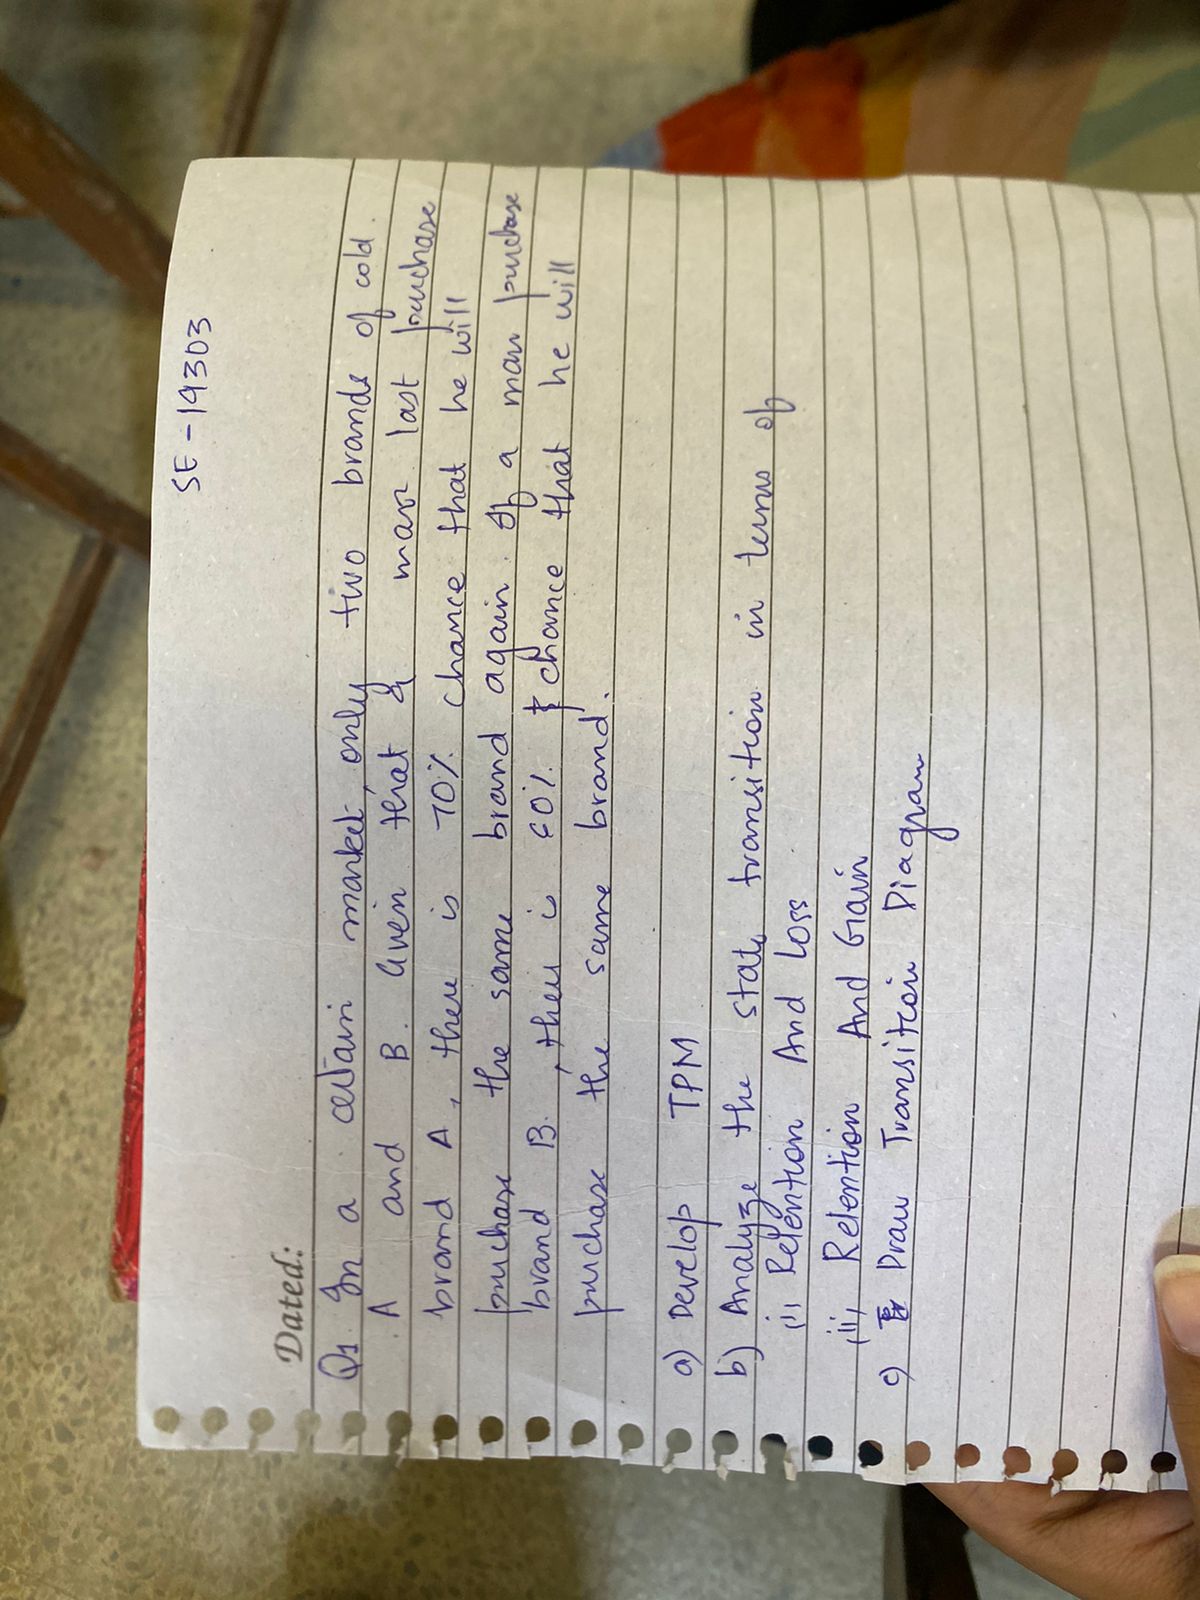 SE-19303
Dated:
Q1. In a certain market, only two brands of cold
A and B. Given that a man last purchase
brand A, there is 70% chance that he will
purchase the same brand again. If a man purchase
brand B, there is 60% chance that he will
purchase the same brand.
a) Develop TPM
b) Analyze the state transition in terms of
(i) Retention And Loss
(ii) Retention And Gain
c) Draw Transition Diagram